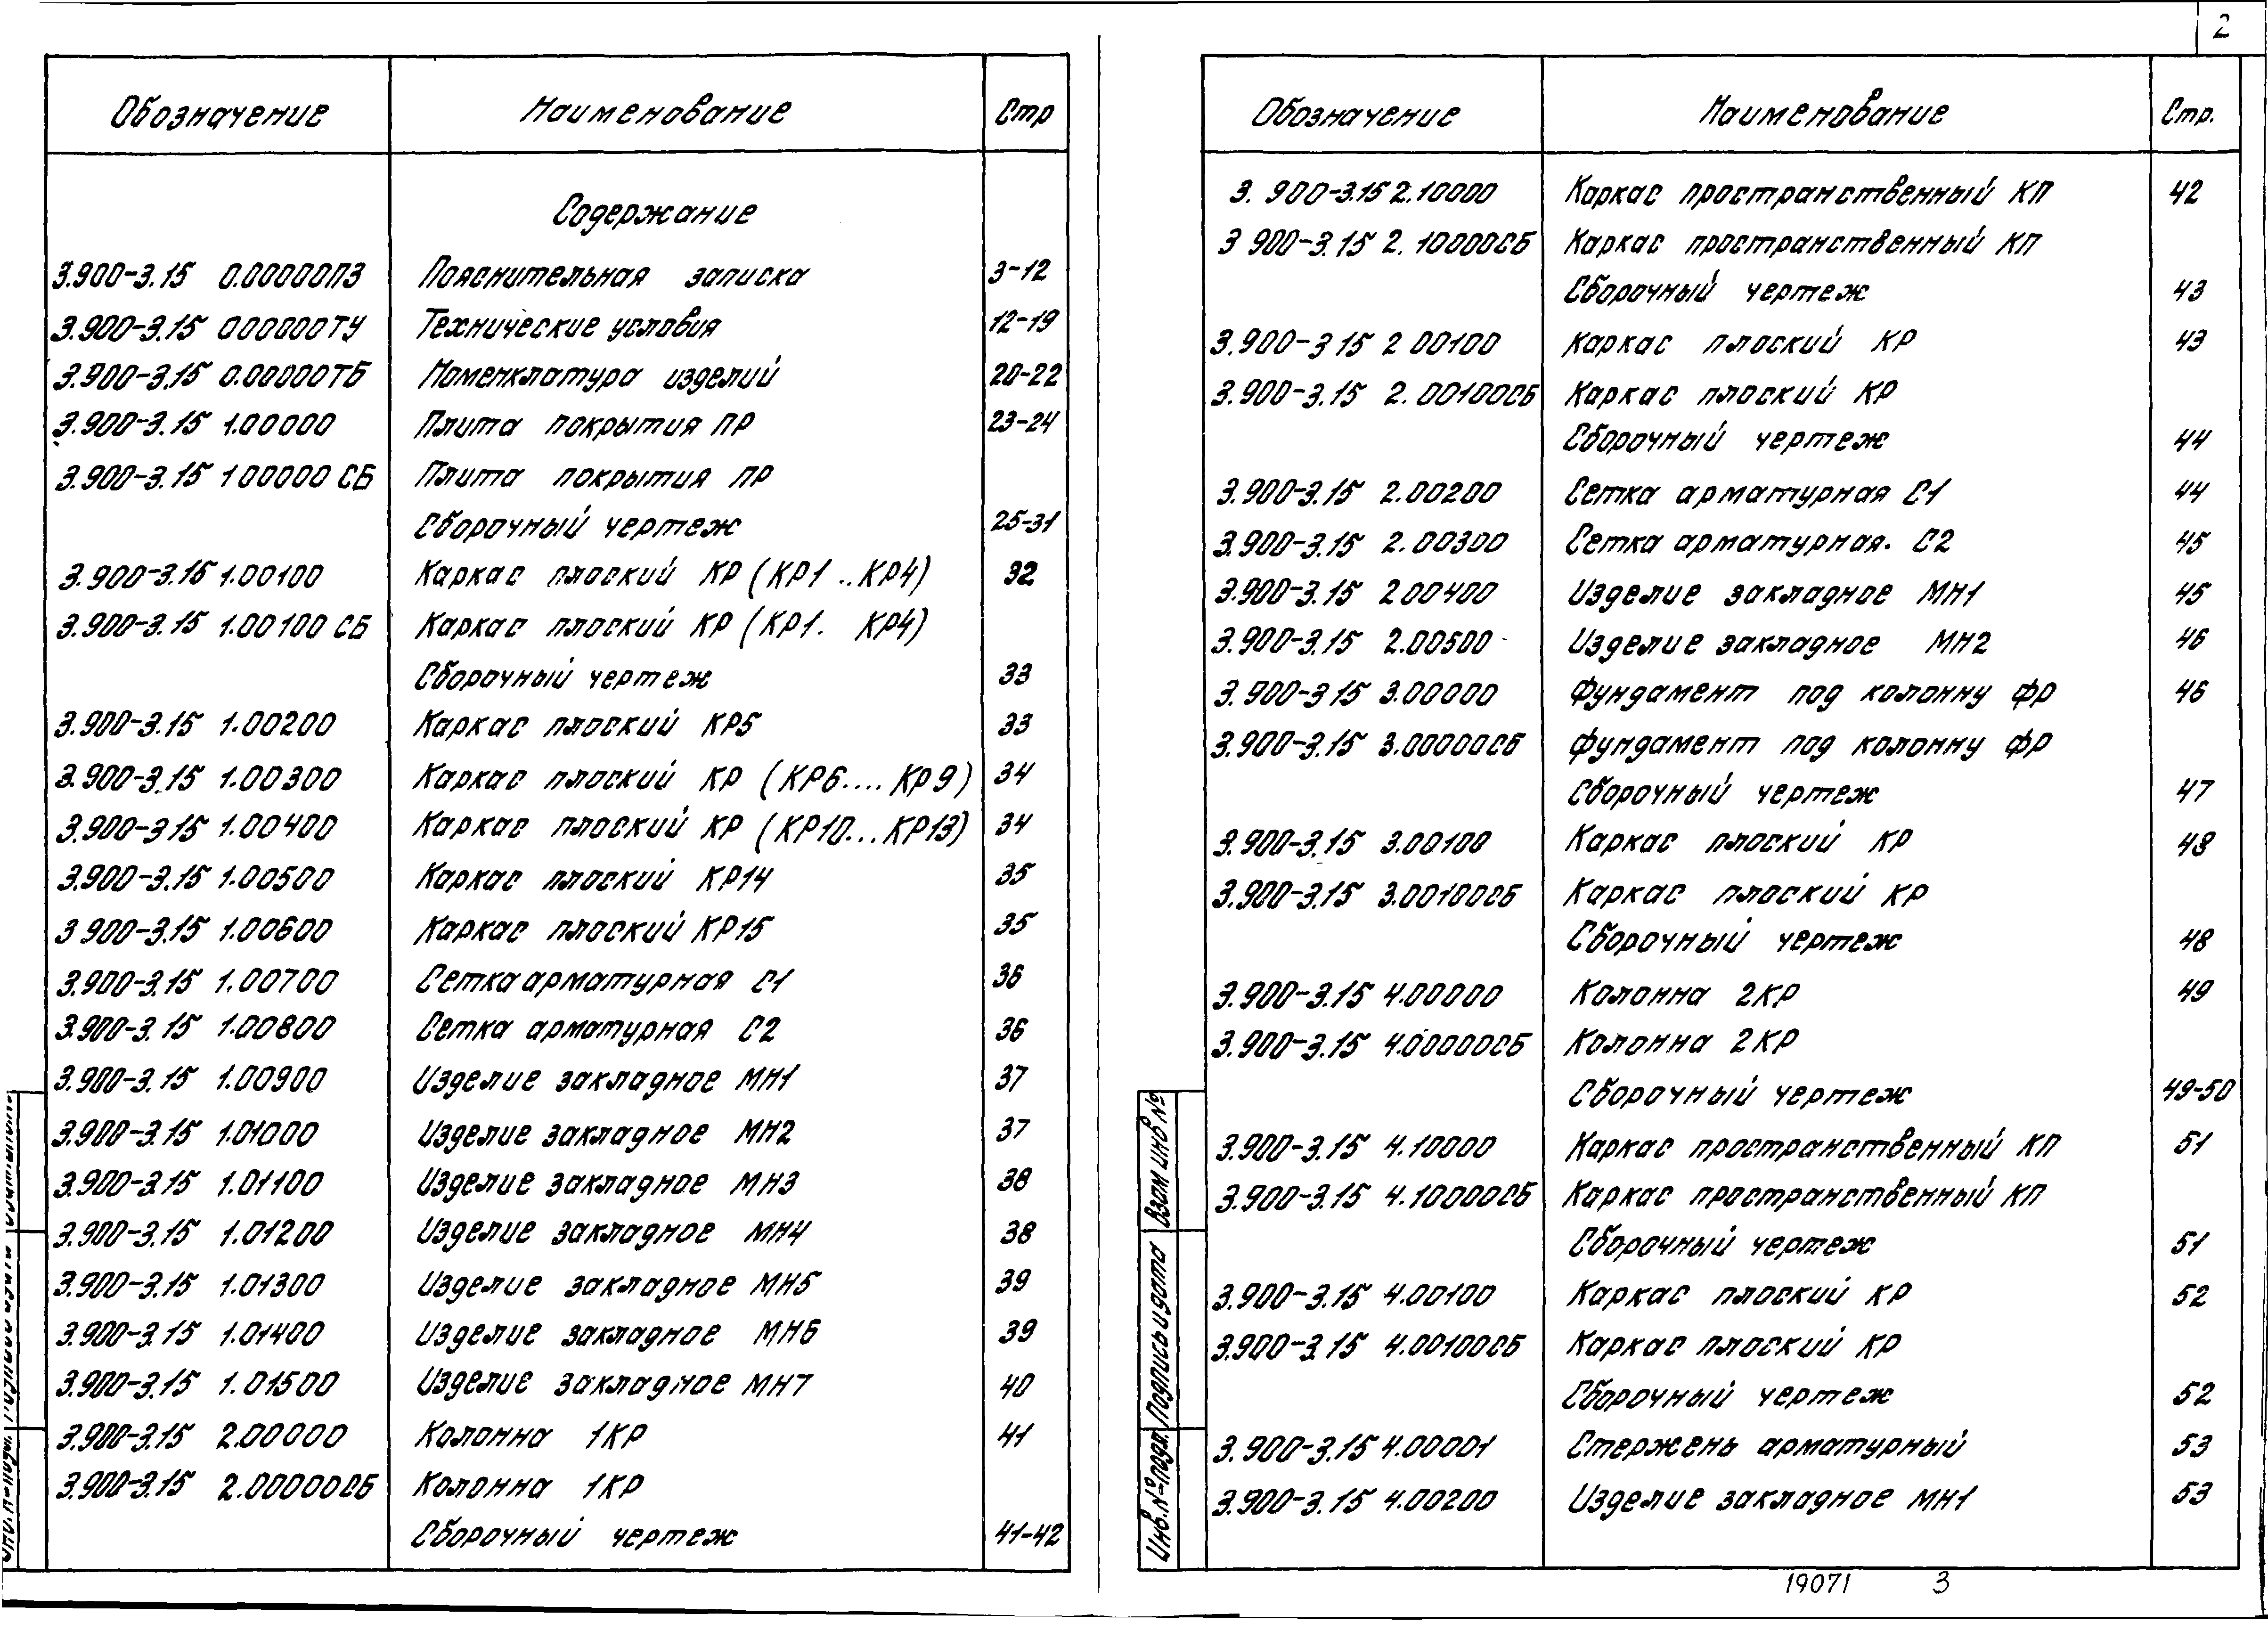 2
Обозначение Наименование Стр
Содержание
3.900-3.15 0.00000ПЗ Пояснительная записка 3-12
3.900-3.15 000000ТУ Технические условия 12-19
3.900-3.15 0.00000ТБ Номенклатура изделий 20-22
3.900-3.15 1.00000 Плита покрытия ПР 23-24
3.900-3.15 100000 СБ Плита покрытия ПР
Сборочный чертеж 25-31
3.900-3.15 1.00100 Каркас плоский КР (КР1 .. КР4) 32
3.900-3.15 1.00100 СБ Каркас плоский КР (КР1. КР4)
Сборочный чертеж 33
3.900-3.15 1.00200 Каркас плоский КР5 33
3.900-3.15 1.00300 Каркас плоский КР (КР6.... КР9) 34
3.900-3 15 1.00400 Каркас плоский КР (КР10... КР13) 34
3.900-3.15 1.00500 Каркас плоский КР14 35
3 900-3.15 1.00600 Каркас плоский КР15 35
3.900-3.15 1.00700 Сетка арматурная С1 36
3.900-3.15 1.00800 Сетка арматурная С2 36
3.900-3.15 1.00900 Изделие закладное МН1 37
3.900-3.15 1.01000 Изделие закладное МН2 37
3.900-3.15 1.01100 Изделие закладное МН3 38
3.900-3.15 1.01200 Изделие закладное МН4 38
3.900-3.15 1.01300 Изделие закладное МН5 39
3.900-3.15 1.01400 Изделие закладное МН6 39
3.900-3.15 1.01500 Изделие закладное МН7 40
3.900-3.15 2.00000 Колонна 1КР 41
3.900-3.15 2.00000СБ Колонна 1КР
Сборочный чертеж 41-42
Обозначение Наименование Стр.
3. 900-3.15 2.10000 Каркас пространственный КП 42
3 900-3.15 2. 10000СБ Каркас пространственный КП
Сборочный чертеж 43
3.900-3 15 2 00100 Каркас плоский КР 43
3.900-3.15 2. 00100СБ Каркас плоский КР
Сборочный чертеж 44
3.900-3.15 2.00200 Сетка арматурная С1 44
3.900-3.15 2.00300 Сетка арматурная. С2 45
3.900-3.15 200400 Изделие закладное МН1 45
3.900-3.15 2.00500 Изделие закладное МН2 46
3. 900-3 15 3.00000 Фундамент под колонну ФР 46
3.900-3.15 3.00000СБ Фундамент под колонну ФР
Сборочный чертеж 47
3.900-3.15 3.00100 Каркас плоский КР 48
3.900-3.15 3.00100СБ Каркас плоский КР
Сборочный чертеж 48
3.900-3.15 4.00000 Колонна 2КР 49
3.900-3.15 4.00000СБ Колонна 2КР
Сборочный чертеж 49-50
3.900-3.15 4.10000 Каркас пространственный КП 51
3.900-3.15 4.10000СБ Каркас пространственный КП
Сборочный чертеж 51
3.900-3.15 4.00100 Каркас плоский КР 52
3.900-3.15 4.00100СБ Каркас плоский КР
Сборочный чертеж 52
3.900-3.15 4.00001 Стержень арматурный 53
3.900-3.15 4.00200 Изделие закладное МН1 53
Взам инв №
Подпись и дата
Инв.№ подл.
19071 3